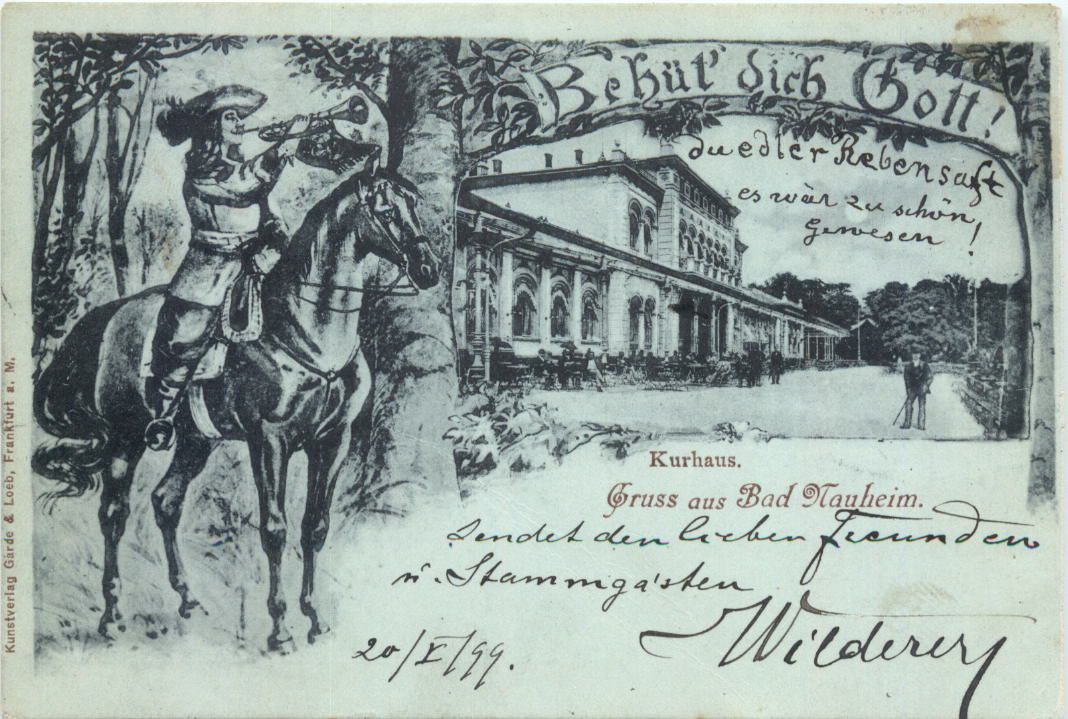 Behüt' dich Gott!
du edler Rebensaft
es wär zu schön,
gewesen!
Kurhaus.
Gruss aus Bad Nauheim.
sendet den lieben Freunden
u. Stammgästen
Wilderer
20/X/99.
Kunstverlag Garde & Loeb, Frankfurt a. M.